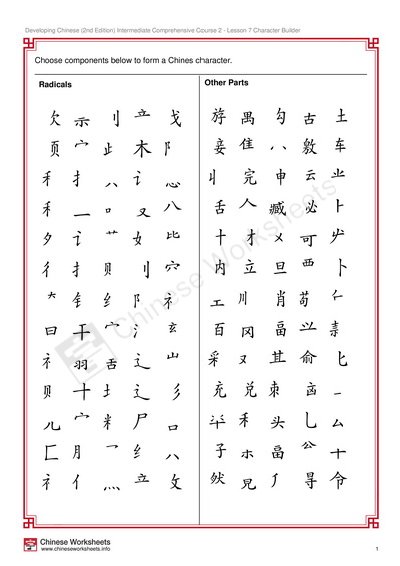 Developing Chinese (2nd Edition) Intermediate Comprehensive Course 2 - Lesson 7 Character Builder
Choose components below to form a Chines character.
Radicals
Other Parts
欠 示 刂 亠 戈
页 宀 止 木 阝
禾 扌 八 讠 心
禾 一 口 又 八
夕 讠 艹 女 比
彳 扌 贝 刂 穴
钅 纟 阝 礻
曰 干 宀 氵 玄
礻 羽 舌 辶 山
贝 十 土 辶 彡
儿 宀 米 尸 口
匚 月 冖 纟 八
礻 亻 灬 立 文
斿 禺 勾 古 土
妾 隹 敫 车
丩 完 申 云
舌 人 臧 必 卜
十 才 可
内 立 旦 覀 卜
工 肖 苟
百 冈 畐
采 又 其 俞 匕
充 兑 束
禾 头 乚 厶
子 木 畐 十
然 见 寻 令
Chinese Worksheets
Chinese Worksheets
www.chineseworksheets.info
1